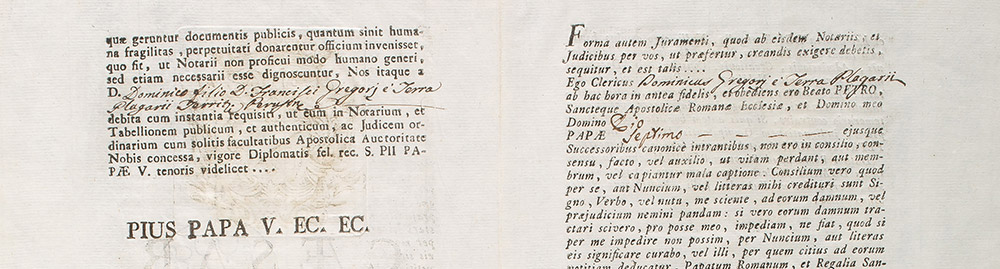 quæ geruntur documentis publicis, quantum sinit huma-
na fragilitas, perpetuitati donarentur officium invenisset,
quo fit, ut Notarii non proficui modo humano generi,
sed etiam necessarii esse dignoscuntur, Nos itaque a
D. Dominico filio D. Francisci Gregorj e Terra
Plagarii Territ:
debita cum instantia requisiti, ut eum in Notarium, et
Tabellionem publicum, et authenticum, ac Judicem or-
dinarium cum solitis facultatibus Apostolica Auctoritate
Nobis concessa, vigore Diplomatis fel. rec. S. PII PA-
PÆ V. tenoris videlicet ....
PIUS PAPA V. EC. EC.
Forma autem Juramenti, quod ab eisdem Notariis, et
Judicibus per vos, ut præfertur, creandis exigere debetis,
sequitur, et est talis ....
Ego Clericus Dominicus Gregorj e Terra Plagarii
ab hac hora in antea fidelis, et obediens ero Beato PETRO,
Sanctæque Apostolicæ Romanæ Ecclesiæ, et Domino meo
Domino Pio
PAPÆ Septimo — — — — — ejusque
Successoribus canonicè intrantibus, non ero in consilio, con-
sensu, facto, vel auxilio, ut vitam perdant, aut mem-
brum, vel capiantur mala captione: Consilium vero quod
per se, aut Nuncium, vel litteras mihi credituri sunt Si-
gno, Verbo, vel nutu, me sciente, ad eorum damnum, vel
præjudicium nemini pandam: si vero eorum damnum tra-
ctari scivero, pro posse meo, impediam, ne fiat, quod si
per me impedire non possim, per Nuncium, aut literas
eis significare curabo, vel illi, per quem citius ad eorum
notitiam deducatur, Papatum Romanum, et Regalia San-